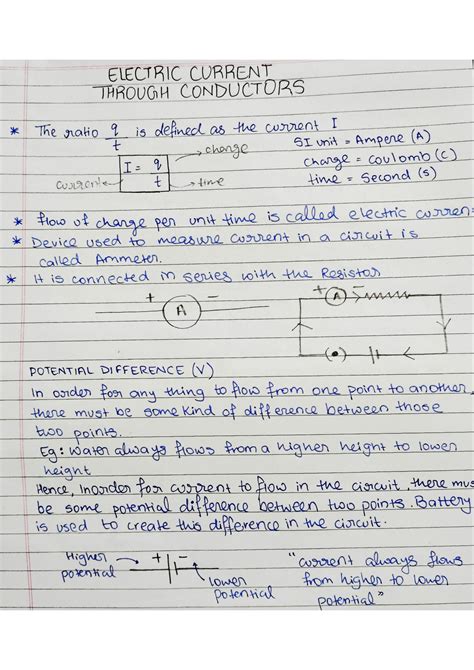 ELECTRIC CURRENT
THROUGH CONDUCTORS
* The ratio q/t is defined as the current I
SI unit = Ampere (A)
charge = Coulomb (C)
time = Second (s)
I = q/t
current
charge
time
* flow of charge per unit time is called electric curren
* Device used to measure current in a circuit is
called Ammeter.
* It is connected in series with the Resistor
+ A −
+ A −
POTENTIAL DIFFERENCE (V)
In order for any thing to flow from one point to another,
there must be some kind of difference between those
two points.
Eg: Water always flows from a higher height to lower
height
Hence, inorder for current to flow in the circuit, there mus
be some potential difference between two points. Battery
is used to create this difference in the circuit.
Higher
potential
+ −
lower
potential
"current always flows
from higher to lower
potential"